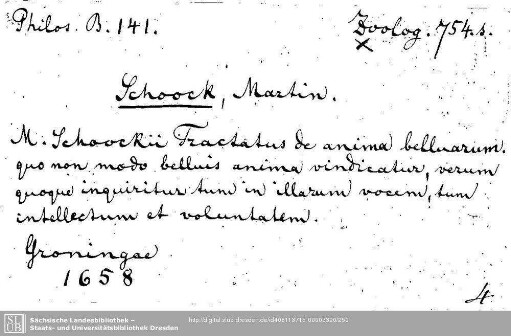 Philos. B. 141.
Zoolog. 754. s.
Schoock, Martin.
M. Schoockii Tractatus de anima belluarum.
quo non modo belluis anima vindicatur, verum
quoque inquiritur tum in illarum vocem, tum
intellectum et voluntatem.
Groningae
1658
4
Sächsische Landesbibliothek –
Staats- und Universitätsbibliothek Dresden